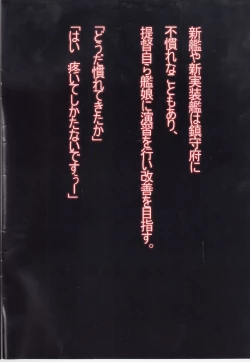 新艦や新実装艦は鎮守府に
不慣れなこともあり、
提督自ら艦娘に演習を行い改善を目指す。
「どうだ慣れてきたか」
「はい 疼いてしかたないですぅー」